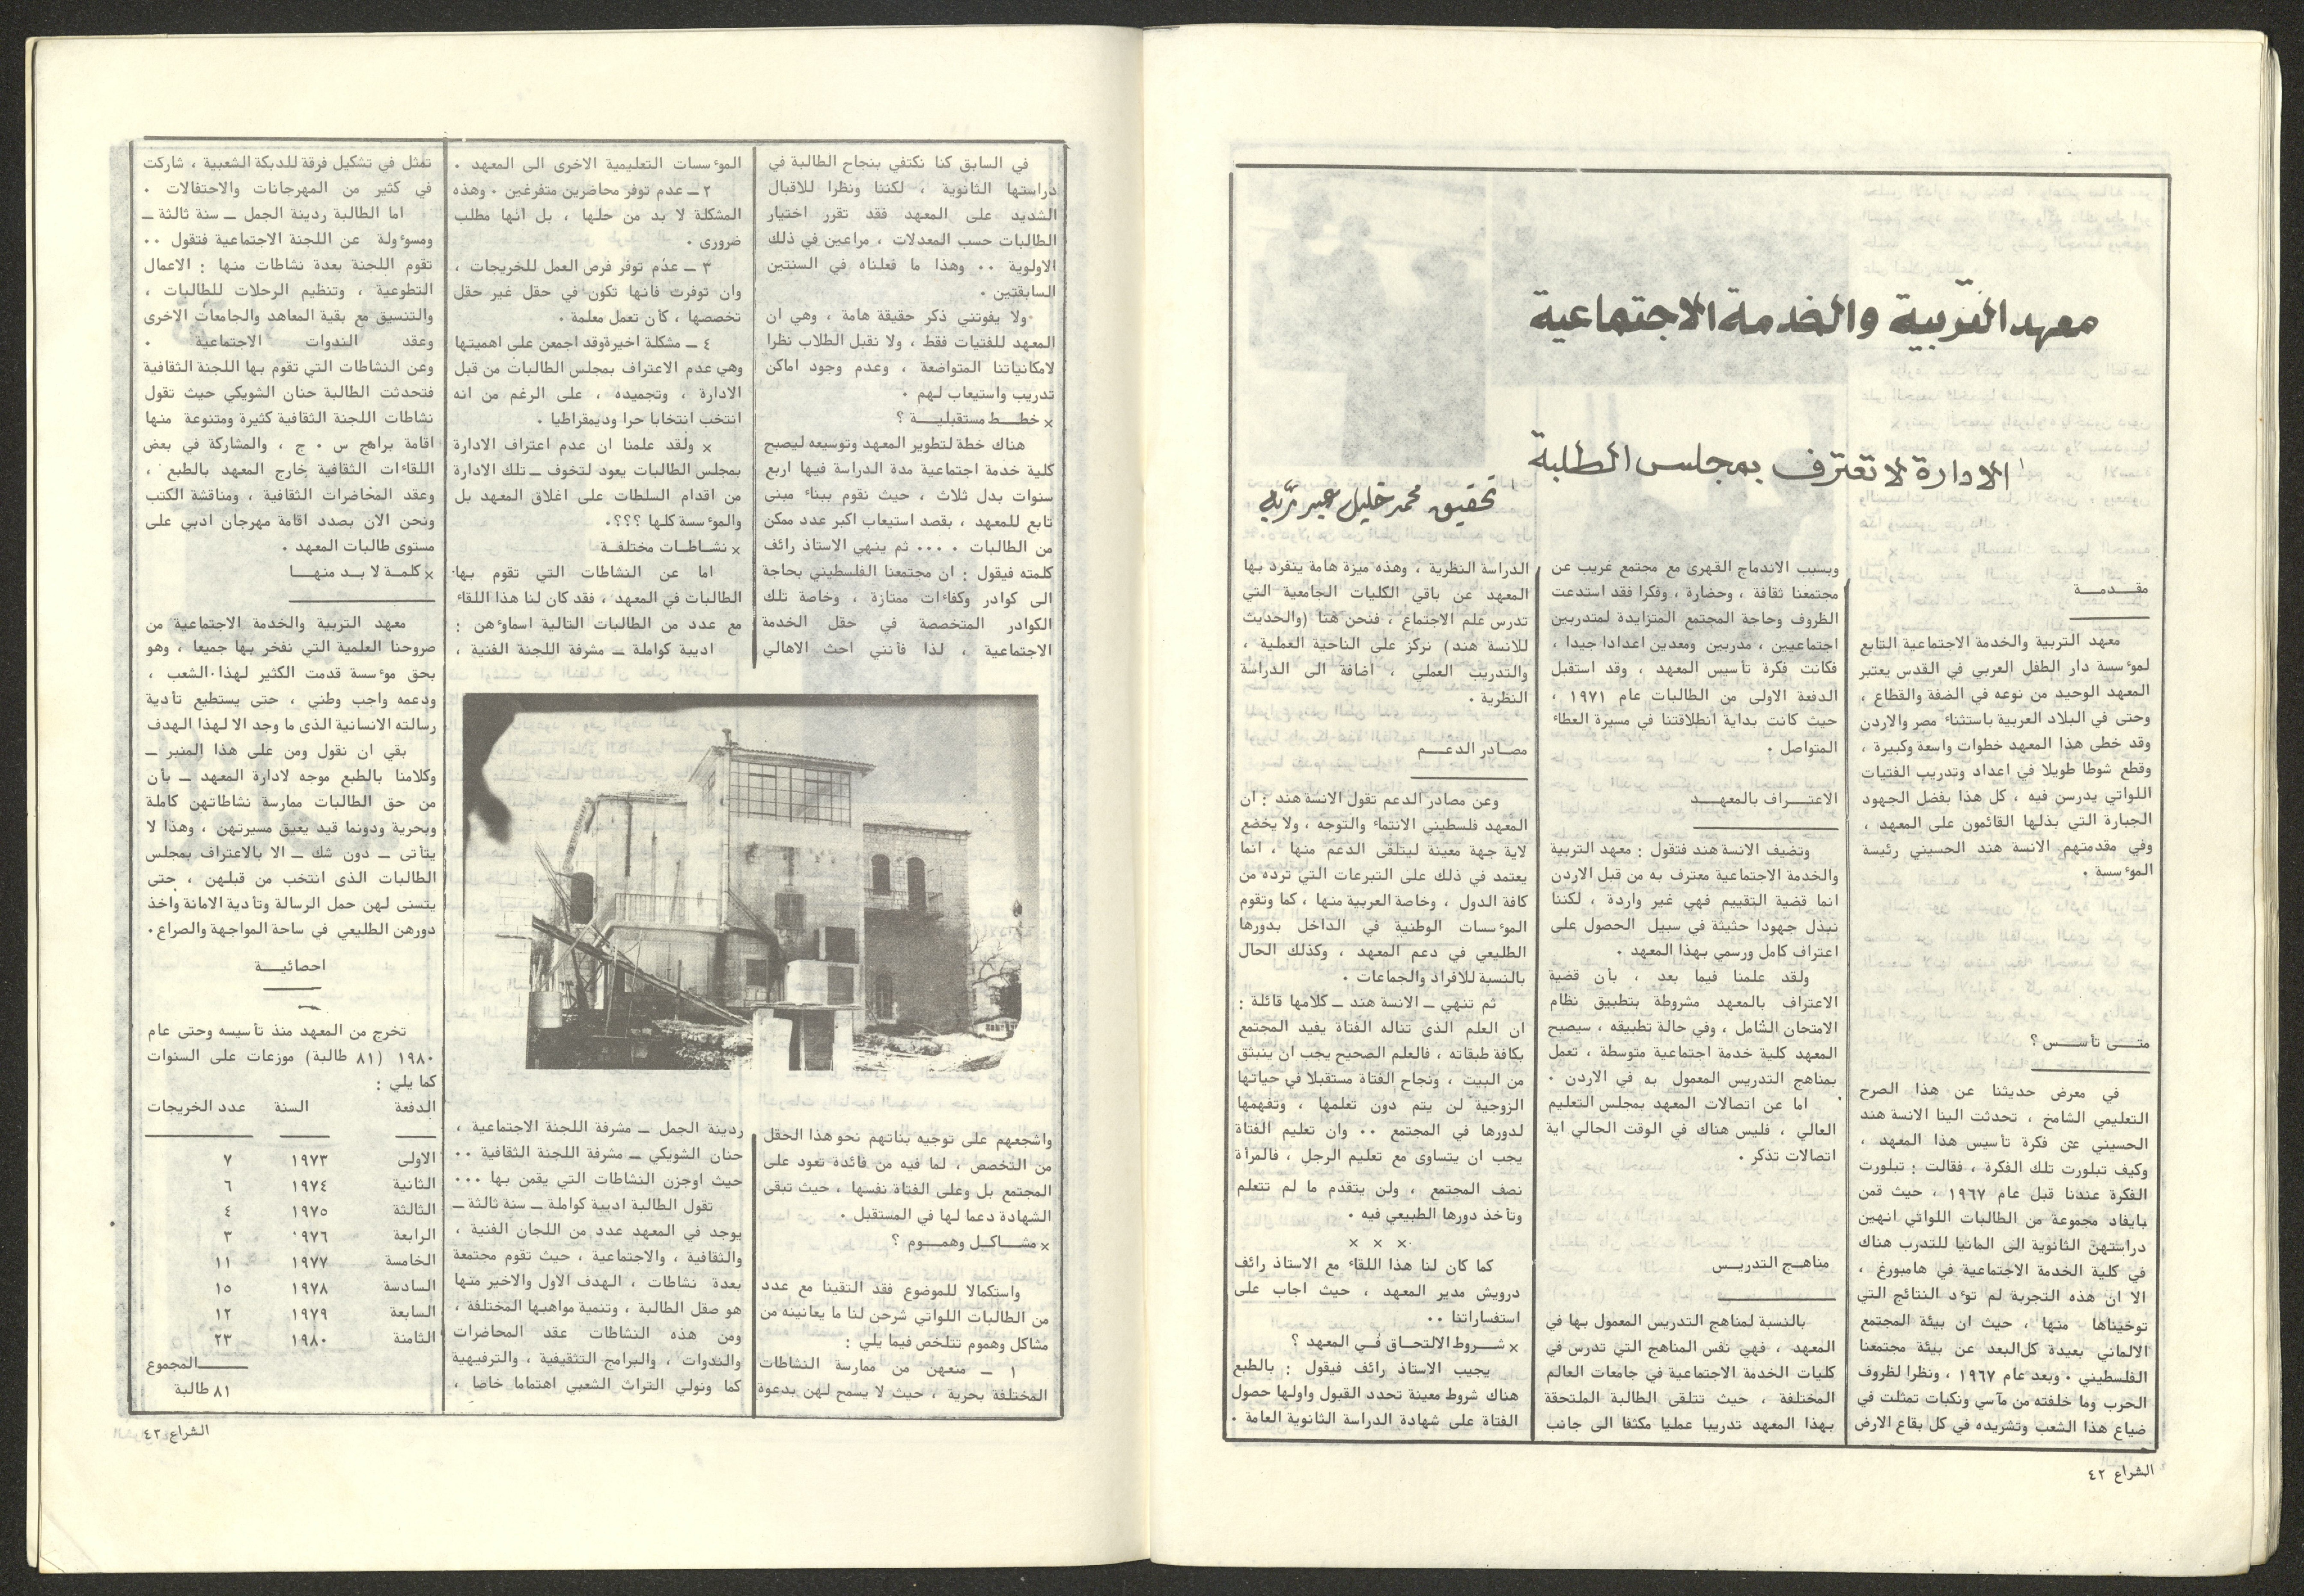 معهد التربية والخدمة الاجتماعية
الادارة لا تعترف بمجلس الطلبة
تحقيق محمد خليل عبد ربه
مقـــدمــــة
معهد التربية والخدمة الاجتماعية التابع
لموءسسة دار الطفل العربي في القدس يعتبر
المعهد الوحيد من نوعه في الضفة والقطاع ،
وحتى في البلاد العربية باستثناء مصر والاردن
وقد خطى هذا المعهد خطوات واسعة وكبيرة ،
وقطع شوطا طويلا في اعداد وتدريب الفتيات
اللواتي يدرسن فيه ، كل هذا بفضل الجهود
الجبارة التي بذلها القائمون على المعهد ،
وفي مقدمتهم الانسة هند الحسيني رئيسة
الموءسسة .
متـــى تأســـس ؟
في معرض حديثنا عن هذا الصرح
التعليمي الشامخ ، تحدثت الينا الانسة هند
الحسيني عن فكرة تأسيس هذا المعهد ،
وكيف تبلورت تلك الفكرة ، فقالت : تبلورت
الفكرة عندنا قبل عام ١٩٦٧ ، حيث قمن
بايفاد مجموعة من الطالبات اللواتي انهين
دراستهن الثانوية الى المانيا للتدرب هناك
في كلية الخدمة الاجتماعية في هامبورغ ،
الا ان هذه التجربة لم توءد النتائج التي
توخيناها منها ، حيث ان بيئة المجتمع
الالماني بعيدة كل البعد عن بيئة مجتمعنا
الفلسطيني . وبعد عام ١٩٦٧ ، ونظرا لظروف
الحرب وما خلفته من مآسي ونكبات تمثلت في
ضياع هذا الشعب وتشريده في كل بقاع الارض
وبسبب الاندماج القهرى مع مجتمع غريب عن
مجتمعنا ثقافة ، وحضارة ، وفكرا فقد استدعت
الظروف وحاجة المجتمع المتزايدة لمتدربين
اجتماعيين ، مدربين ومعدين اعدادا جيدا ،
فكانت فكرة تأسيس المعهد ، وقد استقبل
الدفعة الاولى من الطالبات عام ١٩٧١ ،
حيث كانت بداية انطلاقتنا في مسيرة العطاء
المتواصل .
الاعتـــراف بالمعهـــد
وتضيف الانسة هند فتقول : معهد التربية
والخدمة الاجتماعية معترف به من قبل الاردن
انما قضية التقييم فهي غير واردة ، لكننا
نبذل جهودا حثيثة في سبيل الحصول على
اعتراف كامل ورسمي بهذا المعهد .
ولقد علمنا فيما بعد ، بأن قضية
الاعتراف بالمعهد مشروطة بتطبيق نظام
الامتحان الشامل ، وفي حالة تطبيقه ، سيصبح
المعهد كلية خدمة اجتماعية متوسطة ، تعمل
بمناهج التدريس المعمول به في الاردن .
اما عن اتصالات المعهد بمجلس التعليم
العالي ، فليس هناك في الوقت الحالي اية
اتصالات تذكر .
مناهــج التدريــس
بالنسبة لمناهج التدريس المعمول بها في
المعهد ، فهي نفس المناهج التي تدرس في
كليات الخدمة الاجتماعية في جامعات العالم
المختلفة ، حيث تتلقى الطالبة الملتحقة
بهذا المعهد تدريبا عمليا مكثفا الى جانب
الدراسة النظرية ، وهذه ميزة هامة ينفرد بها
المعهد عن باقي الكليات الجامعية التي
تدرس علم الاجتماع ، فنحن هنا (والحديث
للانسة هند) نركز على الناحية العملية ،
والتدريب العملي ، اضافة الى الدراسة
النظرية .
مصــادر الدعـــم
وعن مصادر الدعم تقول الانسة هند : ان
المعهد فلسطيني الانتماء والتوجه ، ولا يخضع
لاية جهة معينة ليتلقى الدعم منها ، انما
يعتمد في ذلك على التبرعات التي ترده من
كافة الدول ، وخاصة العربية منها ، كما وتقوم
الموءسسات الوطنية في الداخل بدورها
الطليعي في دعم المعهد ، وكذلك الحال
بالنسبة للافراد والجماعات .
ثم تنهي ــ الانسة هند ــ كلامها قائلة :
ان العلم الذى تناله الفتاة يفيد المجتمع
بكافة طبقاته ، فالعلم الصحيح يجب ان ينبثق
من البيت ، ونجاح الفتاة مستقبلا في حياتها
الزوجية لن يتم دون تعلمها ، وتفهمها
لدورها في المجتمع .. وان تعليم الفتاة
يجب ان يتساوى مع تعليم الرجل ، فالمرأة
نصف المجتمع ، ولن يتقدم ما لم تتعلم
وتأخذ دورها الطبيعي فيه .
× × ×
كما كان لنا هذا اللقاء مع الاستاذ رائف
درويش مدير المعهد ، حيث اجاب على
استفساراتنا ..
× شـــروط الالتحــاق فــي المعهد ؟
يجيب الاستاذ رائف فيقول : بالطبع
هناك شروط معينة تحدد القبول واولها حصول
الفتاة على شهادة الدراسة الثانوية العامة .
الشراع ٤٢
في السابق كنا نكتفي بنجاح الطالبة في
دراستها الثانوية ، لكننا ونظرا للاقبال
الشديد على المعهد فقد تقرر اختيار
الطالبات حسب المعدلات ، مراعين في ذلك
الاولوية .. وهذا ما فعلناه في السنتين
السابقتين .
ولا يفوتني ذكر حقيقة هامة ، وهي ان
المعهد للفتيات فقط ، ولا نقبل الطلاب نظرا
لامكانياتنا المتواضعة ، وعدم وجود اماكن
تدريب واستيعاب لهم .
× خطـــط مستقبليـــة ؟
هناك خطة لتطوير المعهد وتوسيعه ليصبح
كلية خدمة اجتماعية مدة الدراسة فيها اربع
سنوات بدل ثلاث ، حيث نقوم ببناء مبنى
تابع للمعهد ، بقصد استيعاب اكبر عدد ممكن
من الطالبات . ... ثم ينهي الاستاذ رائف
كلمته فيقول : ان مجتمعنا الفلسطيني بحاجة
الى كوادر وكفاءات ممتازة ، وخاصة تلك
الكوادر المتخصصة في حقل الخدمة
الاجتماعية ، لذا فأنني احث الاهالي
واشجعهم على توجيه بناتهم نحو هذا الحقل
من التخصص ، لما فيه من فائدة تعود على
المجتمع بل وعلى الفتاة نفسها ، حيث تبقى
الشهادة دعما لها في المستقبل .
× مشـــاكــل وهمـــوم ؟
واستكمالا للموضوع فقد التقينا مع عدد
من الطالبات اللواتي شرحن لنا ما يعانينه من
مشاكل وهموم تتلخص فيما يلي :
١ ــ منعهن من ممارسة النشاطات
المختلفة بحرية ، حيث لا يسمح لهن بدعوة
الموءسسات التعليمية الاخرى الى المعهد .
٢ ــ عدم توفر محاضرين متفرغين . وهذه
المشكلة لا بد من حلها ، بل انها مطلب
ضرورى .
٣ ــ عدم توفر فرص العمل للخريجات ،
وان توفرت فانها تكون في حقل غير حقل
تخصصها ، كأن تعمل معلمة .
٤ ــ مشكلة اخيرة وقد اجمعن على اهميتها
وهي عدم الاعتراف بمجلس الطالبات من قبل
الادارة ، وتجميده ، على الرغم من انه
انتخب انتخابا حرا وديمقراطيا .
× ولقد علمنا ان عدم اعتراف الادارة
بمجلس الطالبات يعود لتخوف ــ تلك الادارة
من اقدام السلطات على اغلاق المعهد بل
والموءسسة كلها ؟؟؟.
× نشــاطــات مختلفــة
اما عن النشاطات التي تقوم بها
الطالبات في المعهد ، فقد كان لنا هذا اللقاء
مع عدد من الطالبات التالية اسماوءهن :
اديبة كواملة ــ مشرفة اللجنة الفنية ،
ردينة الجمل ــ مشرفة اللجنة الاجتماعية ،
حنان الشويكي ــ مشرفة اللجنة الثقافية ..
حيث اوجزن النشاطات التي يقمن بها ...
تقول الطالبة اديبة كواملة ــ سنة ثالثة ــ
يوجد في المعهد عدد من اللجان الفنية ،
والثقافية ، والاجتماعية ، حيث تقوم مجتمعة
بعدة نشاطات ، الهدف الاول والاخير منها
هو صقل الطالبة ، وتنمية مواهبها المختلفة ،
ومن هذه النشاطات عقد المحاضرات
والندوات ، والبرامج التثقيفية ، والترفيهية
كما ونولي التراث الشعبي اهتماما خاصا ،
تمثل في تشكيل فرقة للدبكة الشعبية ، شاركت
في كثير من المهرجانات والاحتفالات .
اما الطالبة ردينة الجمل ــ سنة ثالثة ــ
ومسوءولة عن اللجنة الاجتماعية فتقول ..
تقوم اللجنة بعدة نشاطات منها : الاعمال
التطوعية ، وتنظيم الرحلات للطالبات ،
والتنسيق مع بقية المعاهد والجامعات الاخرى
وعقد الندوات الاجتماعية .
وعن النشاطات التي تقوم بها اللجنة الثقافية
فتحدثت الطالبة حنان الشويكي حيث تقول
نشاطات اللجنة الثقافية كثيرة ومتنوعة منها
اقامة برامج س . ج ، والمشاركة في بعض
اللقاءات الثقافية خارج المعهد بالطبع ،
وعقد المحاضرات الثقافية ، ومناقشة الكتب
ونحن الان بصدد اقامة مهرجان ادبي على
مستوى طالبات المعهد .
× كلمــة لا بــد منهـــا
معهد التربية والخدمة الاجتماعية من
صروحنا العلمية التي نفخر بها جميعا ، وهو
بحق موءسسة قدمت الكثير لهذا الشعب ،
ودعمه واجب وطني ، حتى يستطيع تأدية
رسالته الانسانية الذى ما وجد الا لهذا الهدف
بقي ان نقول ومن على هذا المنبر ــ
وكلامنا بالطبع موجه لادارة المعهد ــ بأن
من حق الطالبات ممارسة نشاطاتهن كاملة
وبحرية ودونما قيد يعيق مسيرتهن ، وهذا لا
يتأتى ــ دون شك ــ الا بالاعتراف بمجلس
الطالبات الذى انتخب من قبلهن ، حتى
يتسنى لهن حمل الرسالة وتأدية الامانة واخذ
دورهن الطليعي في ساحة المواجهة والصراع.
احصائيـــة
تخرج من المعهد منذ تأسيسه وحتى عام
١٩٨٠ (٨١ طالبة) موزعات على السنوات
كما يلي :
الدفعة السنة عدد الخريجات
الاولى ١٩٧٣ ٧
الثانية ١٩٧٤ ٦
الثالثة ١٩٧٥ ٤
الرابعة ١٩٧٦ ٣
الخامسة ١٩٧٧ ١١
السادسة ١٩٧٨ ١٥
السابعة ١٩٧٩ ١٢
الثامنة ١٩٨٠ ٢٣
المجموع
٨١ طالبة
الشراع ٤٣